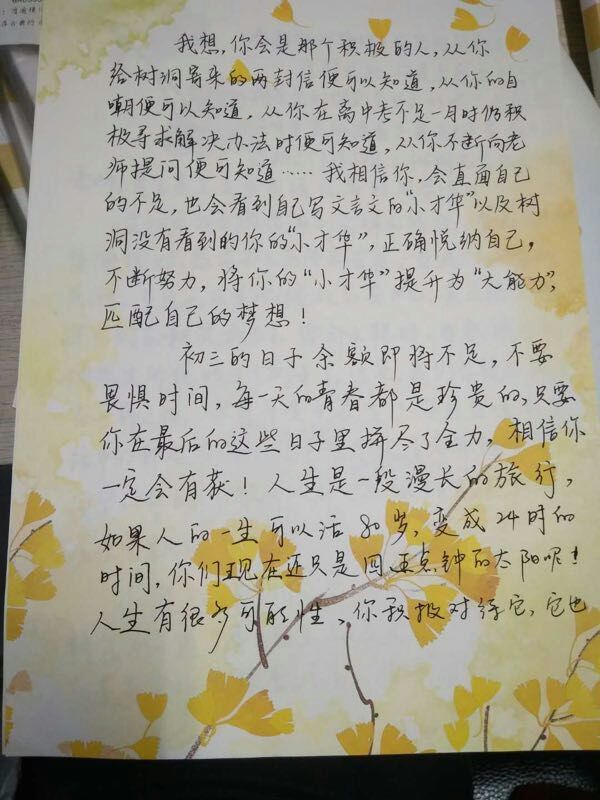 我想,你会是那个积极的人,从你
给树洞寄来的两封信便可以知道,从你的自
嘲便可以知道,从你在离中考不足一月时仍积
极寻求解决办法时便可知道,从你不断向老
师提问便可知道……我相信你,会直面自己
的不足,也会看到自己写文言文的“小才华”以及树
洞没有看到的你的“小才华”,正确悦纳自己,
不断努力,将你的“小才华”提升为“大能力”,
匹配自己的梦想!
初三的日子余额即将不足,不要
畏惧时间,每一天的青春都是珍贵的,只要
你在最后的这些日子里拼尽了全力,相信你
一定会有获!人生是一段漫长的旅行,
如果人的一生可以活80岁,变成24时的
时间,你们现在还只是四五点钟的太阳呢!
人生有很多可能性、你积极对待它,它也